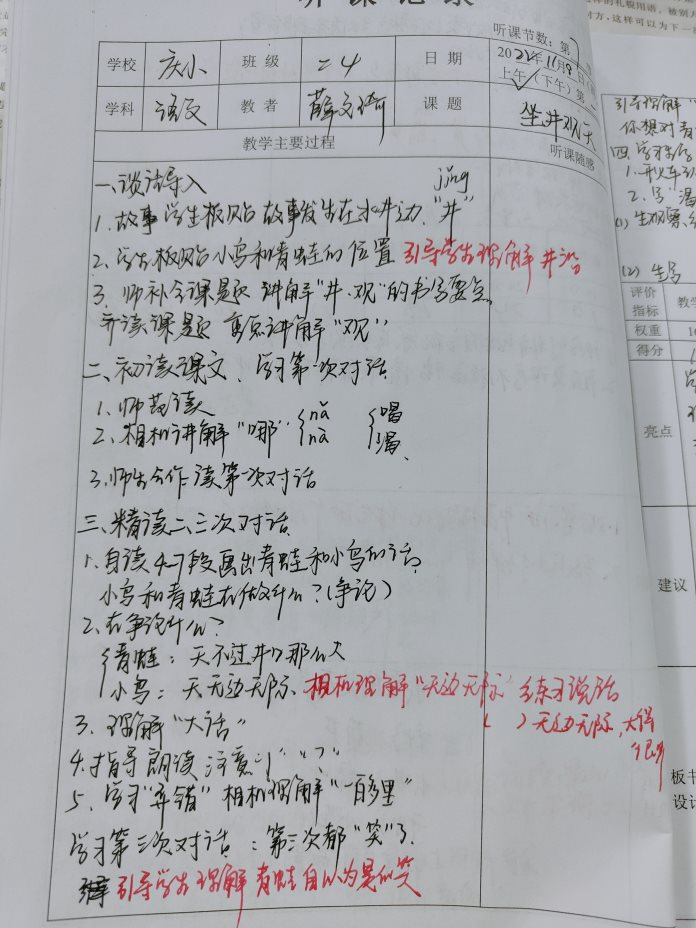 听课记录
听课节数：第7
学校 庆小 班级 二4 日期 2022年11月9日
上午（下午）第
学科 语文 教者 薛文琦 课题 坐井观天
教学主要过程 听课随感
一、谈话导入 jǐng
1. 故事 学生板贴 故事发生在水井边. "井"
2. 学生板贴小鸟和青蛙的位置 引导学生理解 井沿
3. 师补全课题 讲解"井、观"的书写要点.
齐读课题 高原讲解"观"
二、初读课文、学习第一次对话.
1. 师范读
2. 相机讲解"哪" nǎ nà 喝 渴
3. 师生合作读第一次对话
三、精读二、三次对话.
1. 自读4-7段画出青蛙和小鸟的话,
小鸟和青蛙在做什么？(争论)
2. 在争论什么？
青蛙：天不过井口那么大
小鸟：天无边无际. 相机理解"无边无际" 练习说话
( ) 无边无际, 大得很
3. 理解"大话"
4. 指导朗读 注意"！" "？"
5. 学习"弄错" 相机理解"一百多里"
学习第三次对话：第三次都"笑"了.
引导学生理解 青蛙自以为是的笑
引导理解"
你想对青
1. 开火车
2. 写"渴
(1) 生观察
(2) 生写
评价指标 教学
权重 1
得分
亮点
建议
板书设计